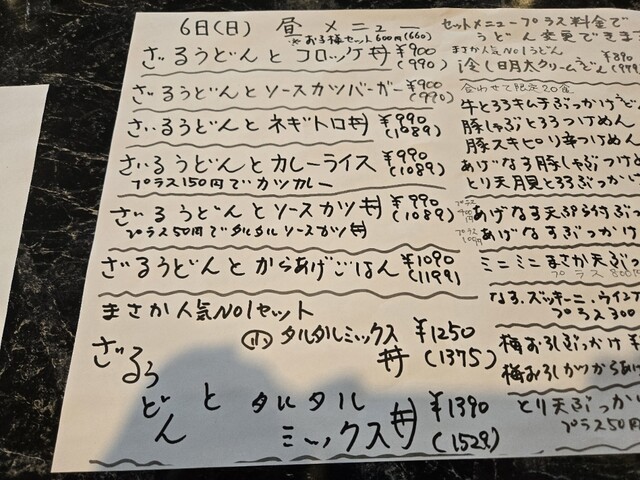 6日(日) 昼 メニュー
※お子様セット600円(660)
ざるうどんと コロッケ丼 ¥900
(990)
ざるうどんと ソースカツバーガー ¥900
(990)
ざるうどんと ネギトロ丼 ¥990
(1089)
ざるうどんと カレーライス ¥990
(1089)
プラス150円でカツカレー
ざるうどんと ソースカツ丼 ¥990
(1089)
プラス50円でタルタルソースカツ丼
ざるうどんと からあげごはん ¥1090
(1199)
まさか人気No1セット
ざるうどん と
小 タルタルミックス丼 ¥1250
(1375)
タルタルミックス丼 ¥1390
(1529)
セットメニュープラス料金で
うどん変更できます
まさか人気No1うどん
明太クリームうどん ¥890
合わせて限定20食
牛とろろキムチぶっかけうど
豚しゃぶとろろつけめん
豚スキピリ辛つけめん
あげなす豚しゃぶつけ
とり天月見とろろぶっかけ
あげなす天ぷら付ぶっ
プラス100円
あげなすぶっかけ
ミニミニまさか天ぶっ
プラス800円
なす、ズッキーニ、ウインナ
プラス300
梅おろしぶっかけ ¥
梅おろしカツからあげ
とり天ぶっかけ
プラス50円